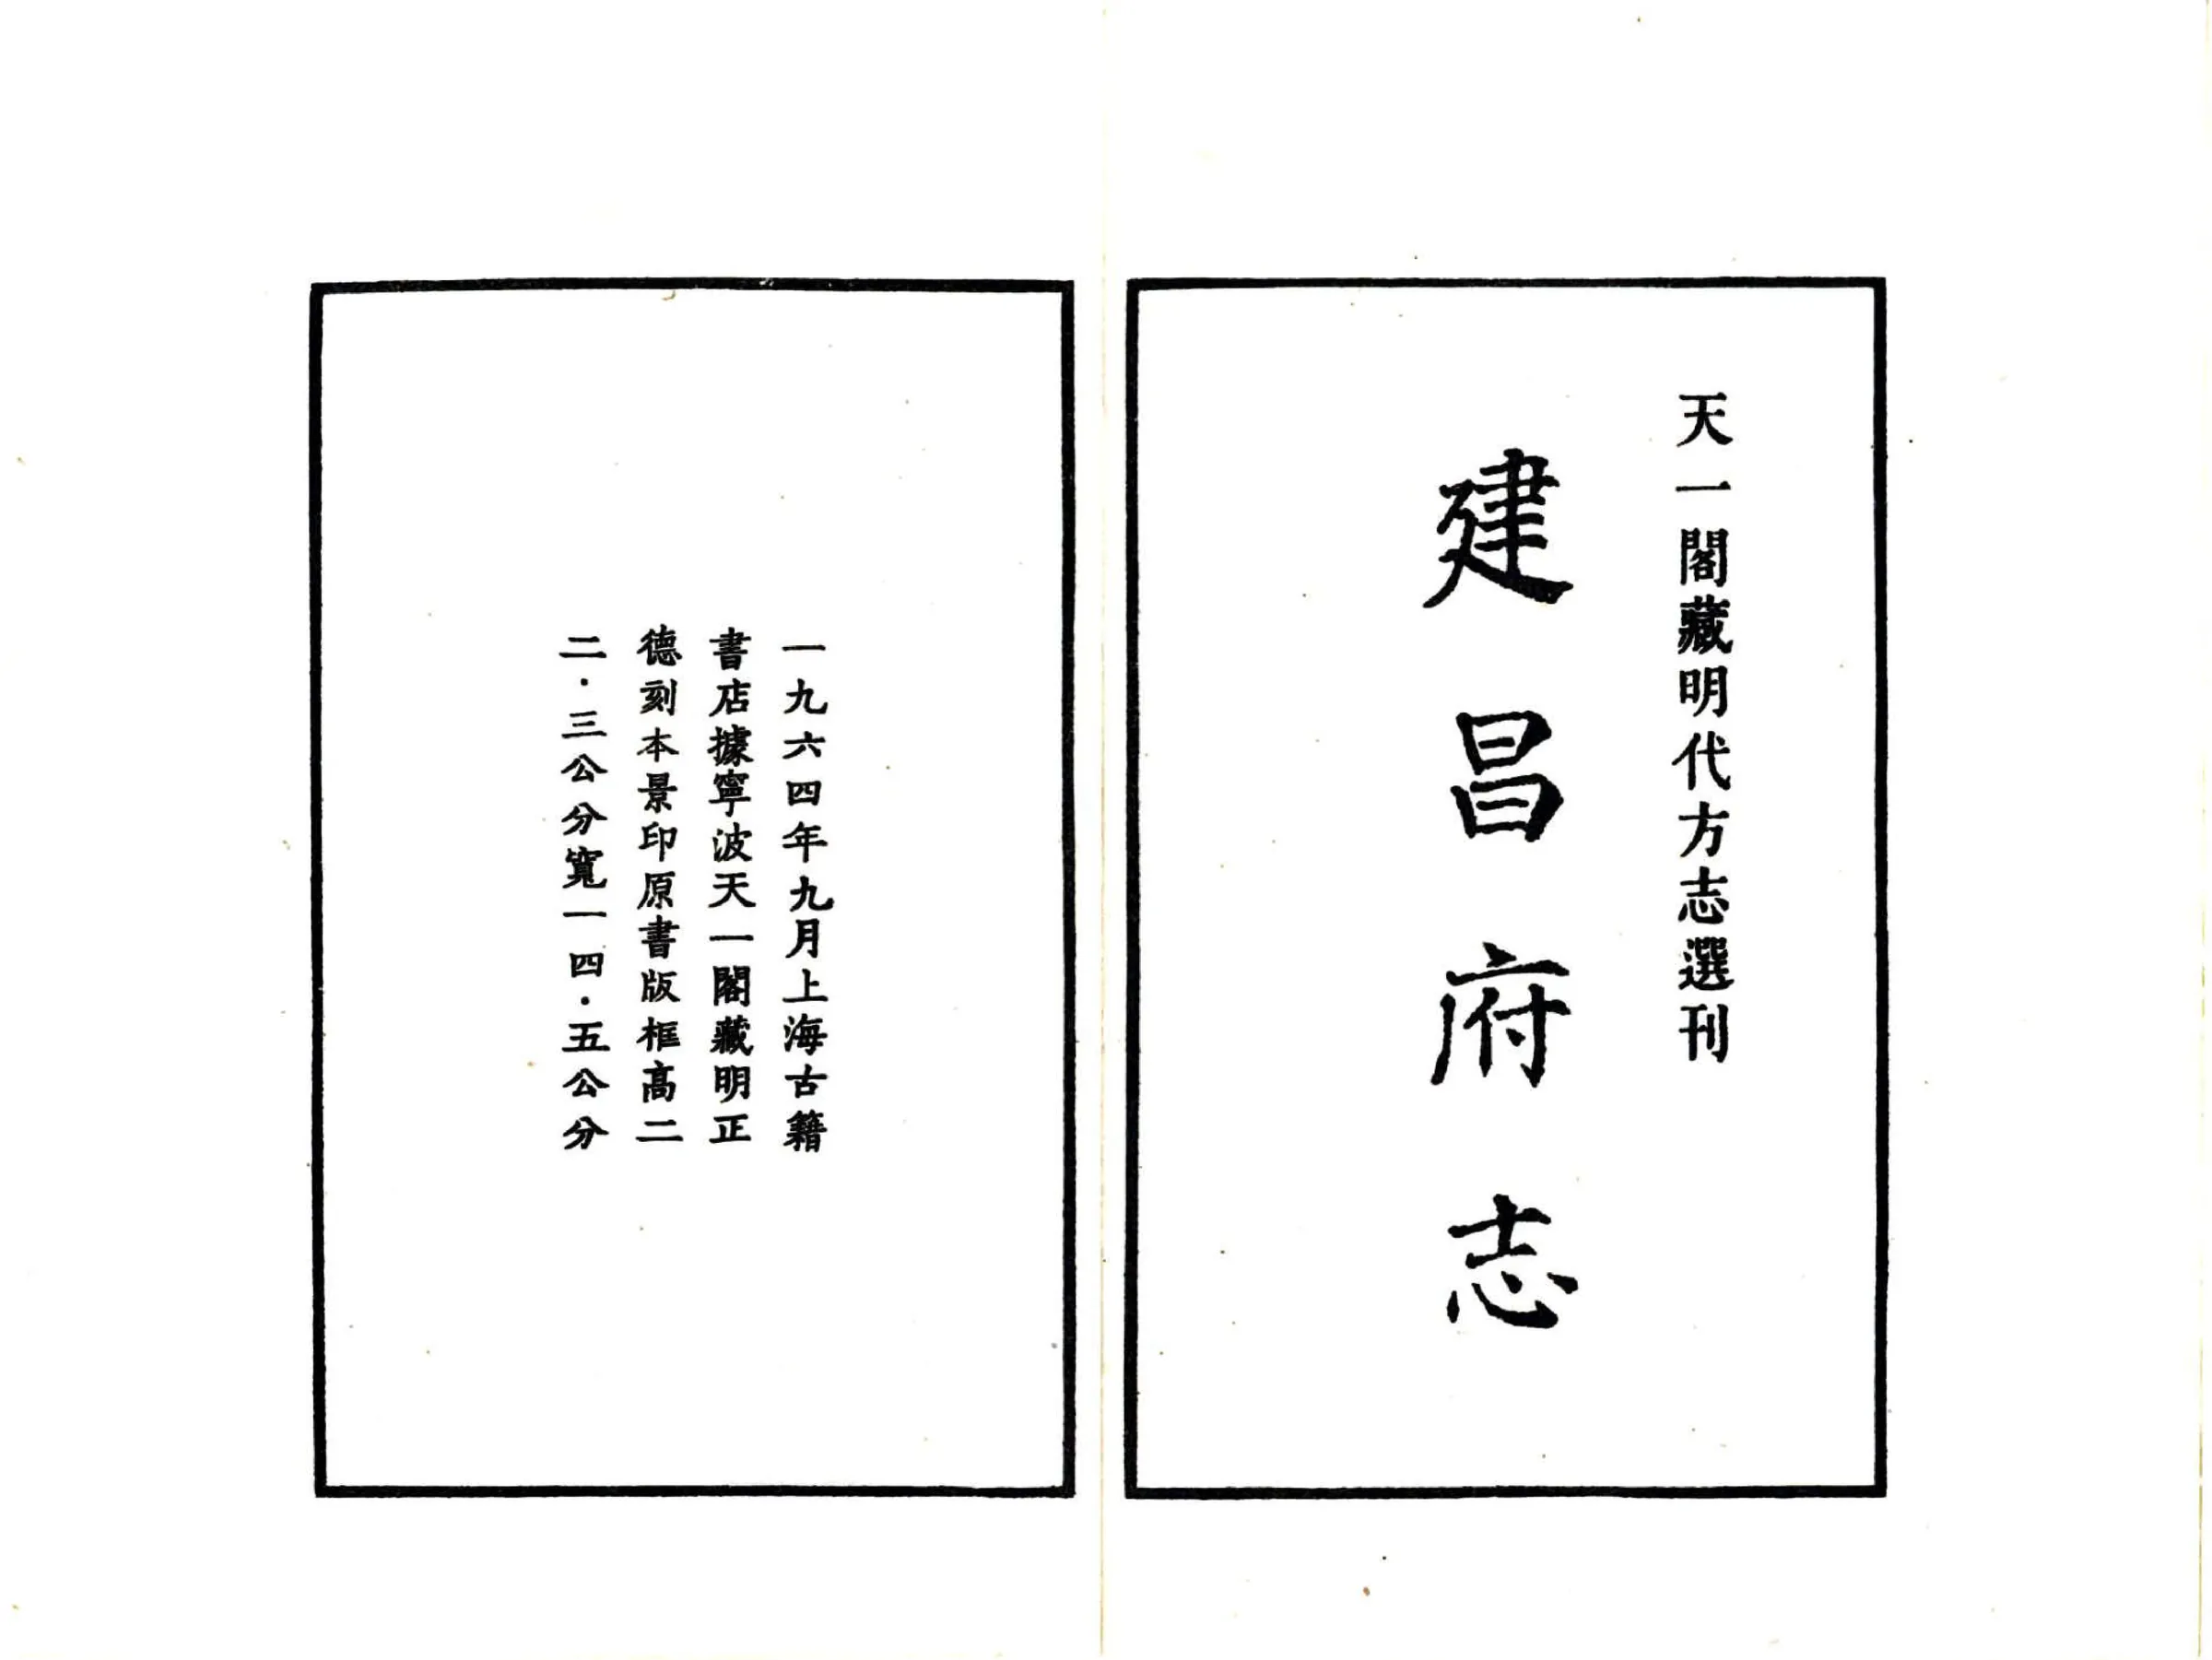 天一閣藏明代方志選刊
建昌府志
一九六四年九月上海古籍
書店據寧波天一閣藏明正
德刻本景印原書版框高二
二·三公分寬一四·五公分